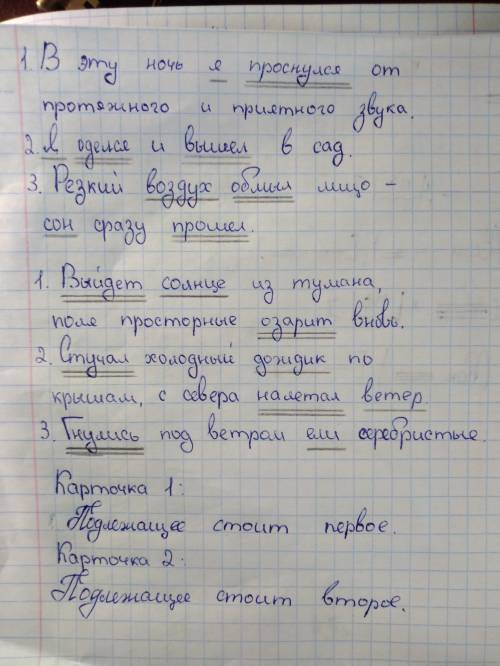 1. В эту ночь я проснулся от
протяжного и приятного звука.
2. Я оделся и вышел в сад.
3. Резкий воздух обмыл лицо –
сон сразу прошел.
1. Выйдет солнце из тумана,
поле просторные озарит вновь.
2. Стучал холодный дождик по
крышам, с севера налетал ветер.
3. Гнулись под ветрам ели серебристые.
Карточка 1:
Подлежащее стоит первое.
Карточка 2:
Подлежащее стоит второе.